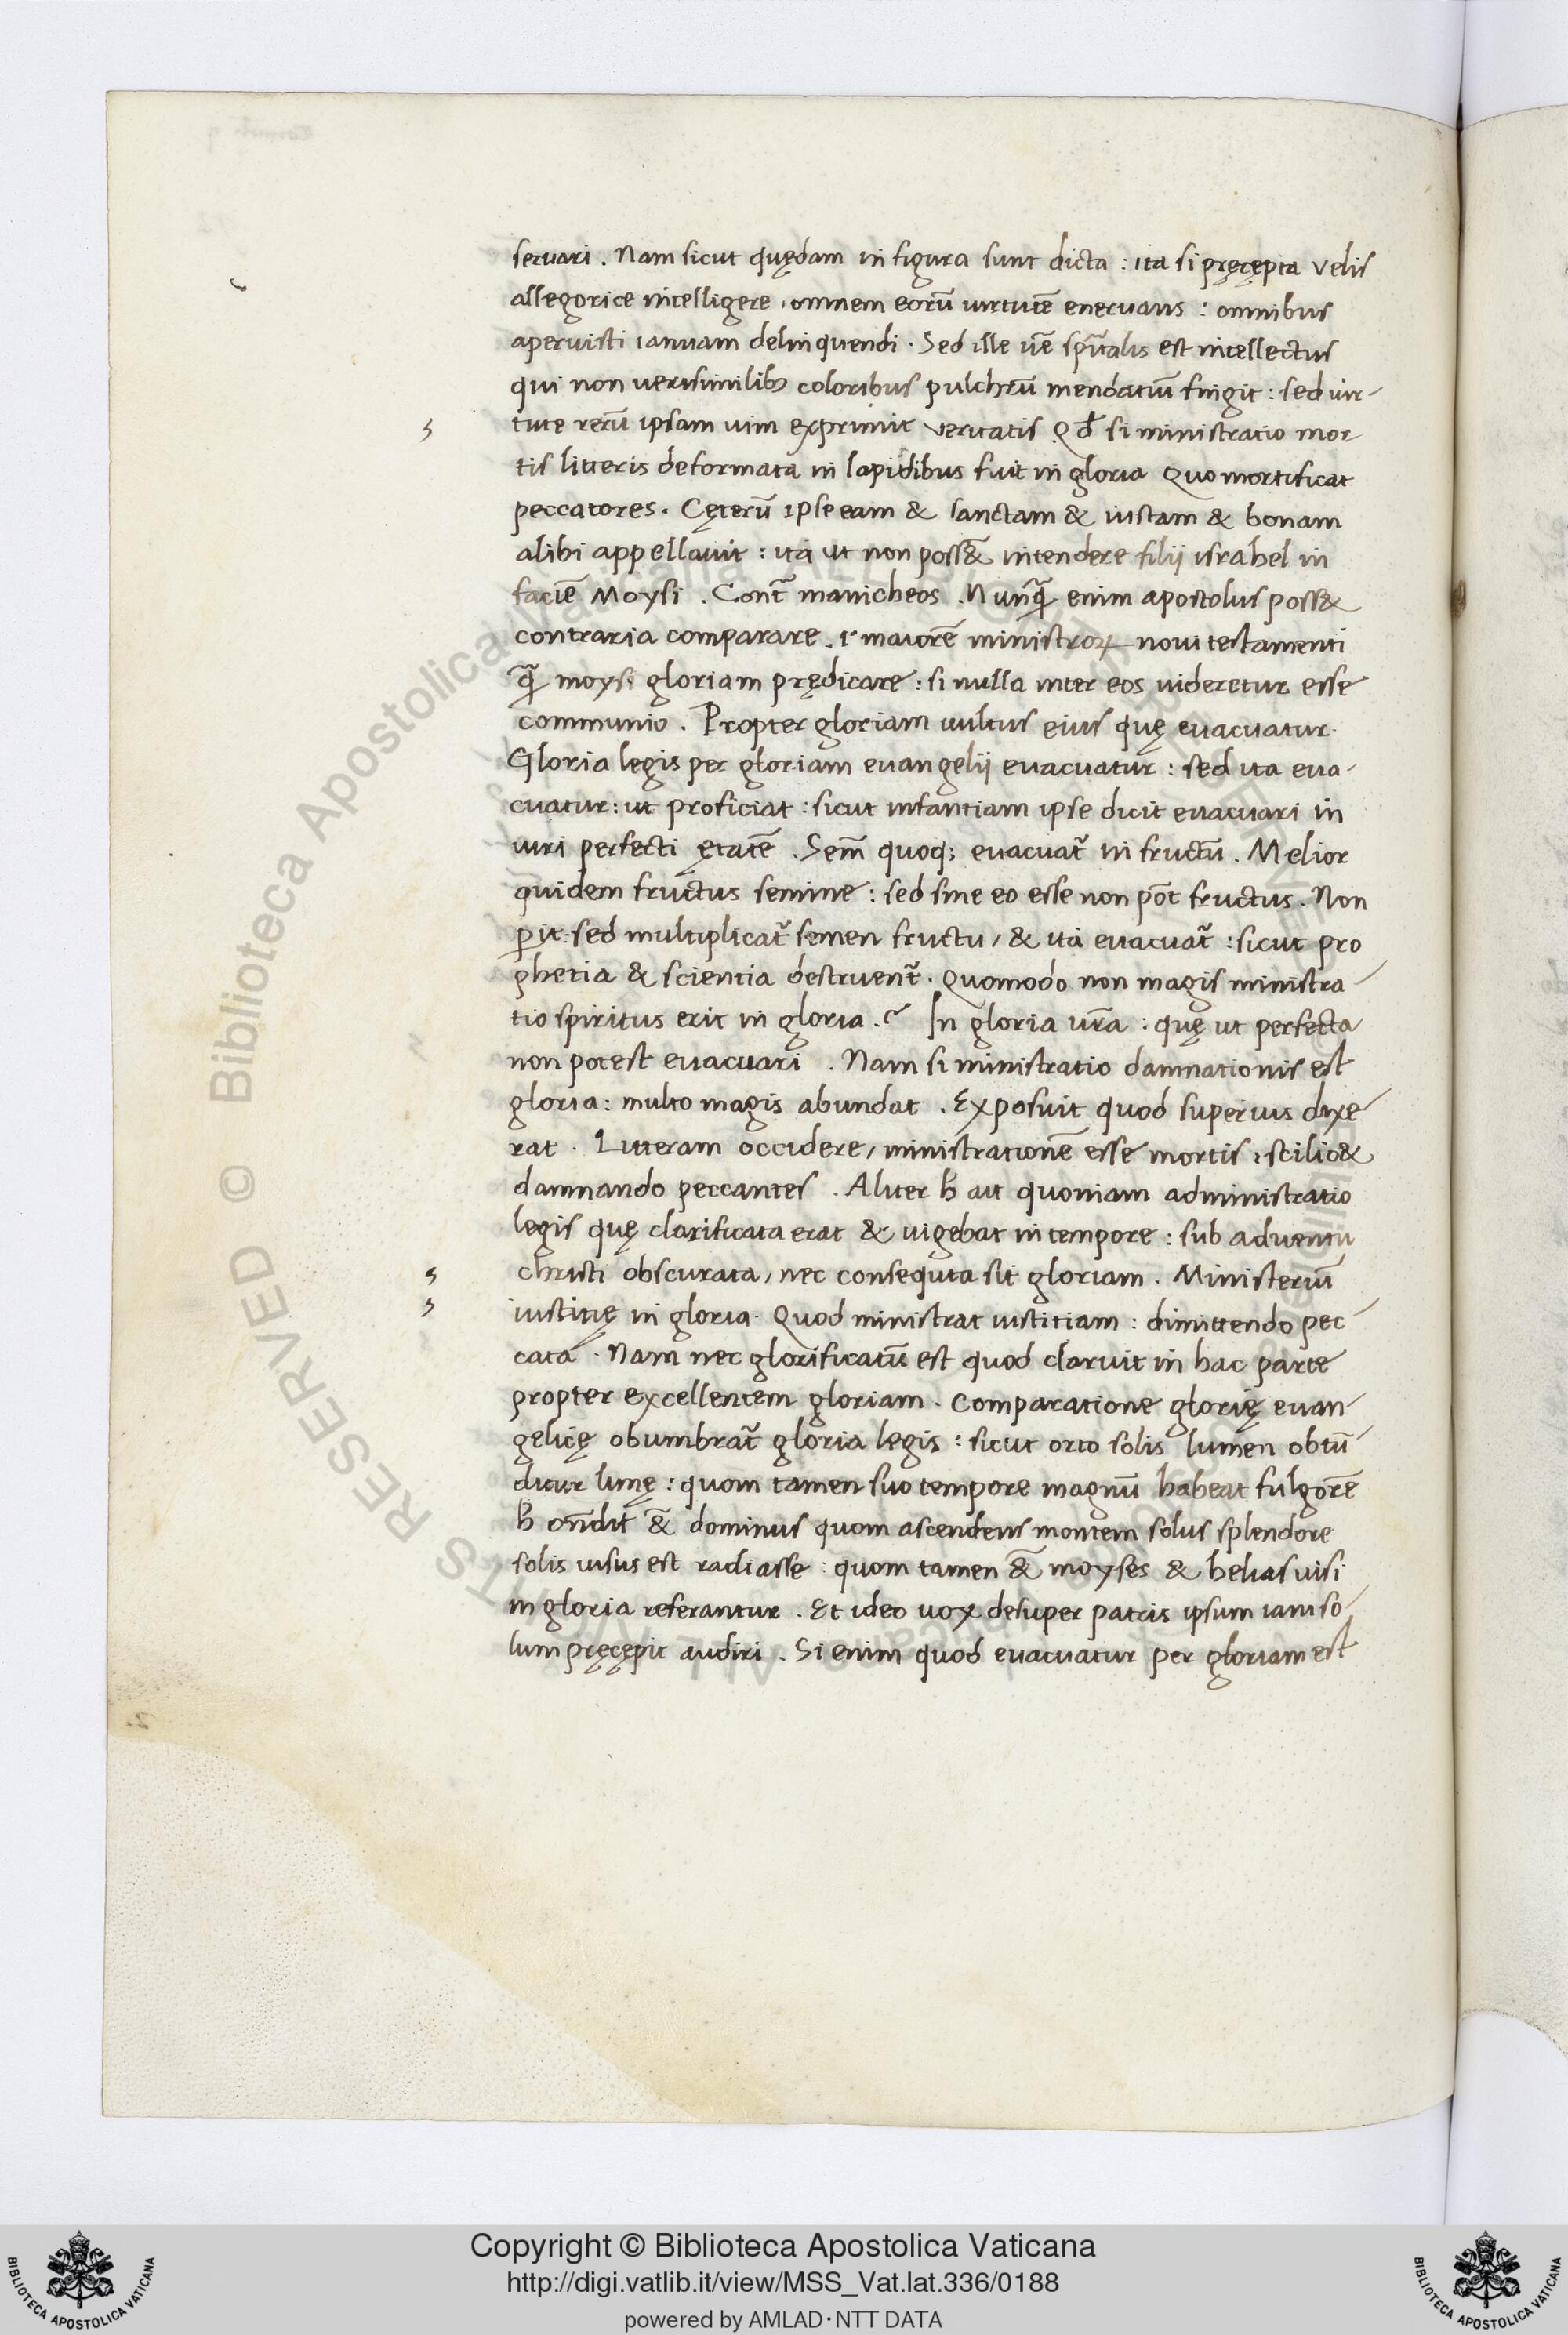 seruari . Nam sicut quędam in figura sunt dicta : ita si pręcępta velis
allegorice intelligere , omnem eorū uirtutē eneruans : omnibus
aperuisti ianuam delinquendi . Sed ille uē sp̄ualis est intellectus
qui non uerisimilibꝫ coloribus pulchrū mendatiū fingit : sed uir-
tute rerū ipsam uim exprimit veritatis Qđ si ministratio mor
tis litteris deformata in lapidibus fuit in gloria Quo mortificat
peccatores . Cęterū ipse eam & sanctam & iustam & bonam
alibi appellauit : ita ut non poss& intendere filij israhel in
faciē Moysi . Cont̄ manicheos . Nunq̄ enim apostolus poss&
contraria comparare . ł maiorē ministroꝝ noui testamenti
q̄ moysi gloriam prędicare : si nulla inter eos uideretur esse
communio . Propter gloriam uultus eius quę euacuatur.
Gloria legis per gloriam euangelij euacuatur : sed ita eua-
cuatur : ut proficiat : sicut infantiam ipse dicit euacuari in
uiri perfecti ętatē . Sem̄ quoq; euacuat̄ in fructū . Melior
quidem fructus semine : sed sine eo esse non pōt fructus . Non
ꝑit : sed multiplicat̄ semen fructu , & ita euacuat̄ : sicut pro
phetia & scientia destruent̄ . Quomodo non magis ministra-
tio spiritus erit in gloria . ? In gloria ur̄a : quę ut perfecta
non potest euacuari . Nam si ministratio damnationis est
gloria : multo magis abundat . Exposuit quod superius dixe-
rat . Litteram occidere , ministrationē esse mortis : scilic&
damnando peccantes . Aliter ħ ait quoniam administratio
legis quę clarificata erat & uigebat in tempore : sub aduentu
christi obscurata , nec consequta sit gloriam . Ministeriū
iustitię in gloria . Quod ministrat iustitiam : dimittendo pec-
cata . Nam nec glorificatū est quod claruit in hac parte
propter excellentem gloriam . Comparatione glorię euan-
gelicę obumbrat̄ gloria legis : sicut orto solis lumen obtū-
ditur lunę : quom tamen suo tempore magnū habeat fulgorē
ħ on̄dit &̄ dominus quom ascendens montem solus splendore
solis uisus est radiasse : quom tamen &̄ moyses & helias uisi
in gloria referantur . Et ideo uox desuper patris ipsum iam so-
lum pręcępit audiri . Si enim quod euacuatur per gloriam est
Copyright © Biblioteca Apostolica Vaticana
http://digi.vatlib.it/view/MSS_Vat.lat.336/0188
powered by AMLAD·NTT DATA